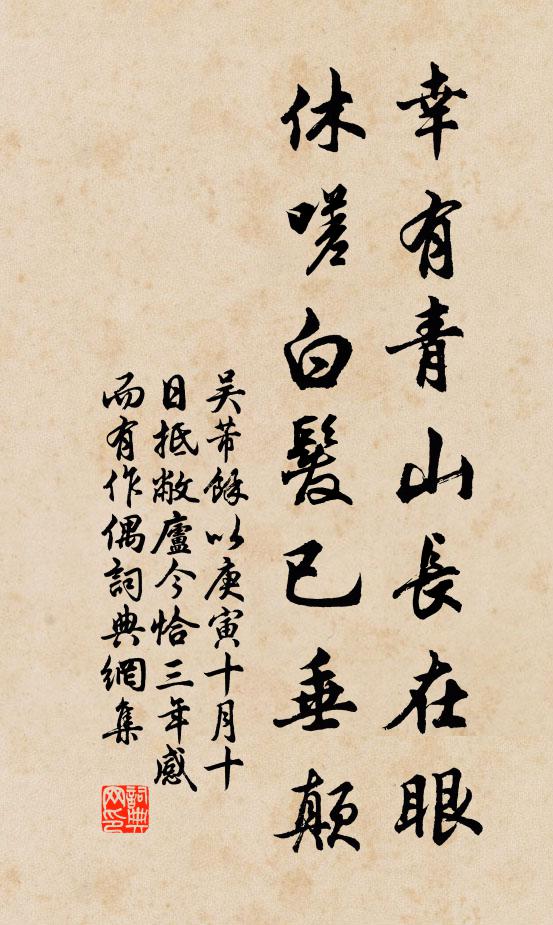 幸有青山長在眼
休嗟白髮已垂顛
吴芾餘以庚寅十月十
日抵敝廬今恰三年感
而有作偶詞典網集
詞典
网印